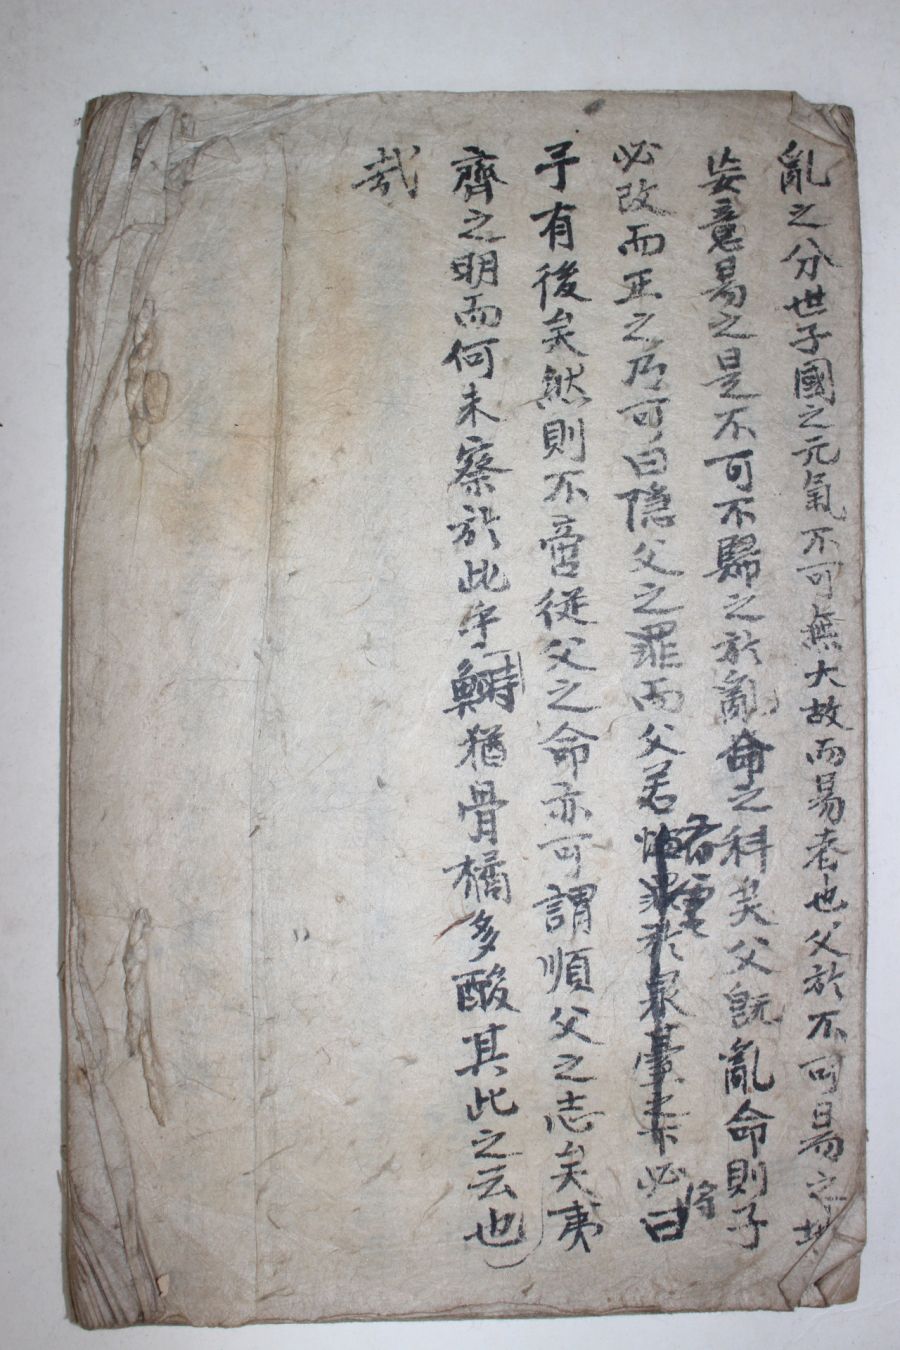 亂之分世子國之元氣不可無大故而易考也父於不可易之地
妄意易之是不可不歸之於亂命之科矣父旣亂命則子
必改而正之乃可曰隐父之罪而父若有靈必將曰
子有後矣然則不啻從父之命亦可謂順父之志矣夷
齊之明而何未察於此乎鰣猶骨橘多酸其此之云也
哉